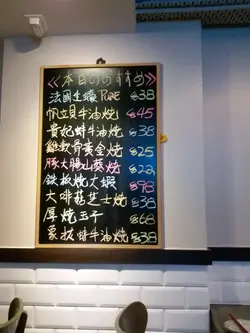 ≪本日のおすすめ≫
法國生蠔 PURE $38
帆立貝牛油燒 $45
貴妃蚌牛油燒 $38
雞軟骨黃金燒 $25
豚大腸山葵燒 $22
鉄板燒大蝦 $98
大啡菇芝士燒 $38
厚燒玉子 $68
象拔蚌牛油燒 $38